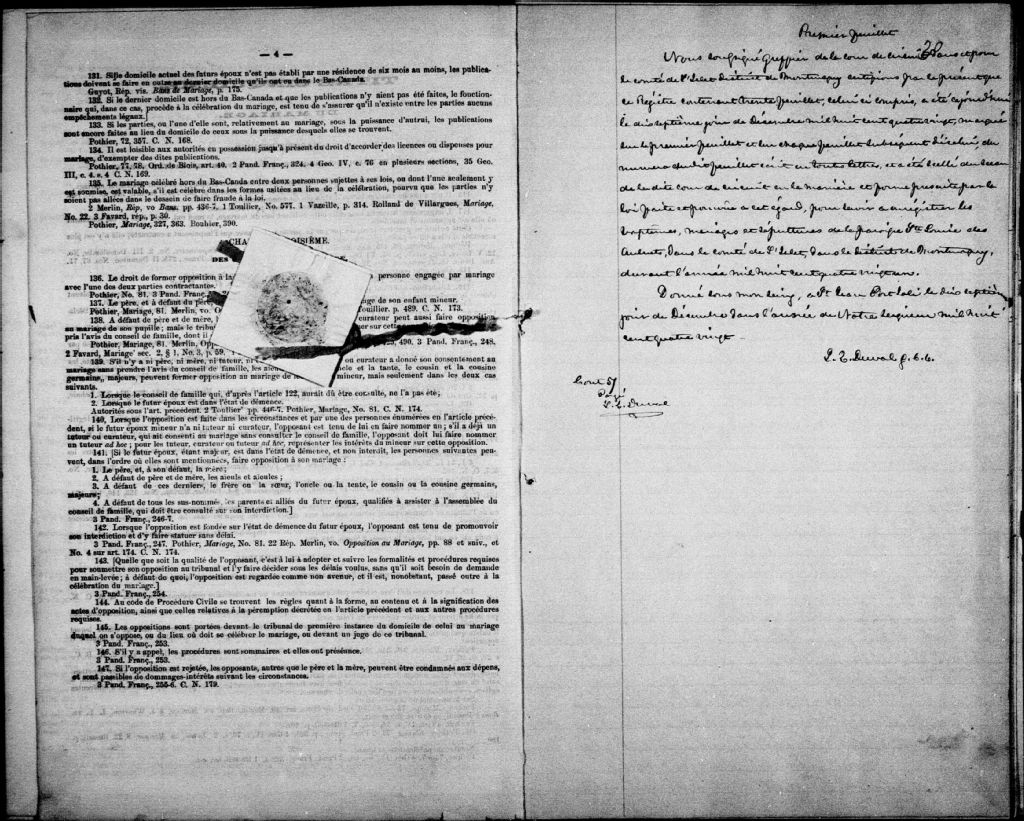 — 4 —
131. Si le domicile actuel des futurs époux n'est pas établi par une résidence de six mois au moins, les publica-
tions doivent se faire en outre au dernier domicile qu'ils ont eu dans le Bas-Canada.
Guyot, Rép. vis. Bans de Mariage, p. 173.
132. Si le dernier domicile est hors du Bas-Canada et que les publications n'y aient pas été faites, le fonction-
naire qui, dans ce cas, procède à la célébration du mariage, est tenu de s'assurer qu'il n'existe entre les parties aucuns
empêchements légaux.]
133. Si les parties, ou l'une d'elles, sont, relativement au mariage, sous la puissance d'autrui, les publications
sont encore faites au lieu du domicile de ceux sous la puissance desquels elles se trouvent.
Pothier, 72, 357. C. N. 168.
134. Il est loisible aux autorités en possession jusqu'à présent du droit d'accorder des licences ou dispenses pour
mariage, d'exempter des dites publications.
Pothier, 77, 78. Ord. de Blois, art. 40. 2 Pand. Franç., 324. 4 Geo. IV, c. 76 en plusieurs sections, 35 Geo.
III, c. 4. s. 4 C. N. 169.
135. Le mariage célébré hors du Bas-Canda entre deux personnes sujettes à ses lois, ou dont l'une seulement y
est soumise, est valable, s'il est célébré dans les formes usitées au lieu de la célébration, pourvu que les parties n'y
soient pas allées dans le dessein de faire fraude à la loi.
2 Merlin, Rép, vo Bans. pp. 436-7. 1 Toullier, No. 577. 1 Vazeille, p. 314. Rolland de Villargues, Mariage,
No. 22. 3 Favard, rép., p. 30.
Pothier, Mariage, 327, 363. Bouhier, 390.
CHA OISIÈME.
DES
136. Le droit de former opposition à la personne engagée par mariage
avec l'une des deux parties contractantes.
Pothier, No. 81. 3 Pand. Franç.
137. Le père, et à défaut du père, age de son enfant mineur.
Pothier, Mariage, 81. Merlin, vo. O Touillier. p. 489. C. N. 173.
138. A défaut de père et de mère, curateur peut aussi faire opposition
au mariage de son pupille; mais le tribun mer sur cette
pris l'avis du conseil de famille, dont il
Pothier, Mariage, 81. Merlin, Opposi 490. 3 Pand. Franç., 248.
2 Favard, Mariage sec. 2. § 1, No. 3, p. 59.
139. S'il n'y a ni père, ni mère, ni tuteur, ni ou curateur a donné son consentement au
mariage sans prendre l'avis du conseil de famille, les aïeu cle et la tante, le cousin et la cousine
germains, majeurs, peuvent former opposition au mariage de mineur, mais seulement dans les deux cas
suivants.
1. Lorsque le conseil de famille qui, d'après l'article 122, aurait dû être consulté, ne l'a pas été;
2. Lorsque le futur époux est dans l'état de démence.
Autorités sous l'art. précédent. 2 Toullier pp. 446-7. Pothier, Mariage, No. 81. C. N. 174.
140. Lorsque l'opposition est faite dans les circonstances et par une des personnes énumérées en l'article précé-
dent, si le futur époux mineur n'a ni tuteur ni curateur, l'opposant est tenu de lui en faire nommer un; s'il a déjà un
tuteur ou curateur, qui ait consenti au mariage sans consulter le conseil de famille, l'opposant doit lui faire nommer
un tuteur ad hoc; pour les tuteur, curateur ou tuteur ad hoc, représenter les intérêts du mineur sur cette opposition.
141. [Si le futur époux, étant majeur, est dans l'état de démence, et non interdit, les personnes suivantes peu-
vent, dans l'ordre où elles sont mentionnées, faire opposition à son mariage:
1. Le père, et, à son défaut, la mère;
2. A défaut de père et de mère, les aïeuls et aïeules;
3. A défaut de ces derniers, le frère ou la sœur, l'oncle ou la tente, le cousin ou la cousine germains,
majeurs;
4. A défaut de tous les sus-nommés, les parents et alliés du futur époux, qualifiés à assister à l'assemblée du
conseil de famille, qui doit être consulté sur son interdiction.]
3 Pand. Franç., 246-7.
142. Lorsque l'opposition est fondée sur l'état de démence du futur époux, l'opposant est tenu de promouvoir
son interdiction et d'y faire statuer sans délai.
3 Pand. Franç., 247. Pothier, Mariage, No. 81. 22 Rép. Merlin, vo. Opposition au Mariage, pp. 88 et suiv., et
No. 4 sur art. 174. C. N. 174.
143. [Quelle que soit la qualité de l'opposant, c'est à lui à adopter et suivre les formalités et procédures requises
pour soumettre son opposition au tribunal et l'y faire décider sous les délais voulus, sans qu'il soit besoin de demande
en main-levée; à défaut de quoi, l'opposition est regardée comme non avenue, et il est, nonobstant, passé outre à la
célébration du mariage.]
3 Pand. Franç., 254.
144. Au code de Procédure Civile se trouvent les règles quant à la forme, au contenu et à la signification des
actes d'opposition, ainsi que celles relatives à la péremption décrétée en l'article précédent et aux autres procédures
requises.
145. Les oppositions sont portées devant le tribunal de première instance du domicile de celui au mariage
duquel on s'oppose, ou du lieu où doit se célébrer le mariage, ou devant un juge de ce tribunal.
3 Pand. Franç., 253.
146. S'il y a appel, les procédures sont sommaires et elles ont préséance.
3 Pand. Franç., 253.
147. Si l'opposition est rejetée, les opposants, autres que le père et la mère, peuvent être condamnés aux dépens,
et sont passibles de dommages-intérêts suivant les circonstances.
3 Pand. Franç., 255-6. C. N. 179.
Premier feuillet
Nous soussigné Greffier de la cour de circuit dans et pour
le comté de l'Islet District de Montmagny certifions par le présent que
ce Régistre contenant trente feuillet, celui ci compris, a été ce jourd'hui
le dix septième jour de Décembre mil huit cent quatre vingt, marqué
sur le premier feuillet et sur chaque feuillet subséquent d'icelui, du
numero du dit feuillet écrit en toutes lettres, et a été scellé du sceau
de la dite cour de circuit en la manière et forme prescrite par la
loi faite et pourvue a cet égard, pour servir a régistrer les
baptêmes, mariages et sépultures de la paroisse Ste Louise des
Aulnets, dans le comté de l'Islet, dans le district de Montmagny,
durant l'année mil huit cent quatre vingt un.
Donné sous mon seing, a St Jean Port Joli le dix septième
jour de Décembre dans l'année de Notre Seigneur mil huit
cent quatre vingt.
P. Z. Duval G. C. C.
P. Z. Duval